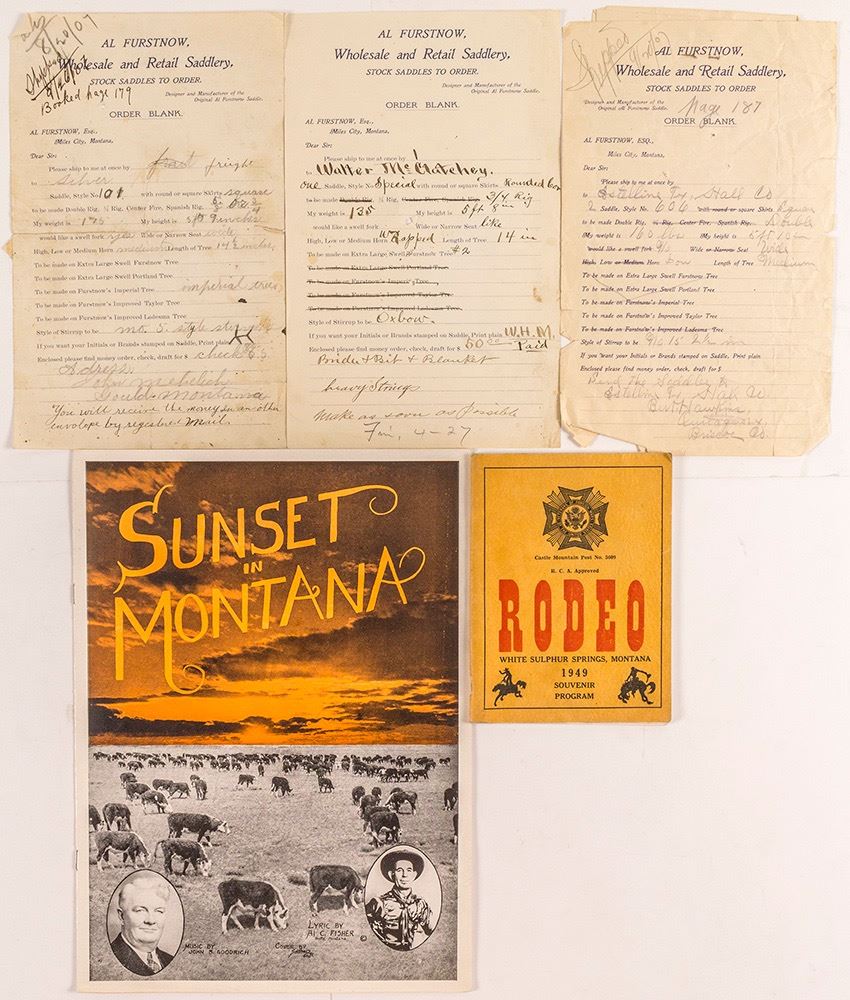 8/20/07
Shipped
Booked page 179
AL FURSTNOW,
Wholesale and Retail Saddlery,
STOCK SADDLES TO ORDER.
Designer and Manufacturer of the
Original Al Furstnow Saddle.
ORDER BLANK.
AL FURSTNOW, Esq.,
Miles City, Montana.
Dear Sir:
Please ship to me at once by freight
to Silver
Saddle, Style No. 101 with round or square Skirts square
to be made Double Rig, ¾ Rig, Center Fire, Spanish Rig,
My weight is 175 My height is 5 ft 9 inches
would like a swell fork Wide or Narrow Seat
High, Low or Medium Horn medium Length of Tree 14½ inches
To be made on Extra Large Swell Furstnow Tree
To be made on Extra Large Swell Portland Tree
To be made on Furstnow's Imperial Tree imperial tree
To be made on Furstnow's Improved Taylor Tree
To be made on Furstnow's Improved Ladesma Tree
Style of Stirrup to be no. 5. style
If you want your Initials or Brands stamped on Saddle, Print plain
Enclosed please find money order, check, draft for $ check
Adress
John
Gould Montana
You will receive the money in an other
envelope by registered mail.
AL FURSTNOW,
Wholesale and Retail Saddlery,
STOCK SADDLES TO ORDER.
Designer and Manufacturer of the
Original Al Furstnow Saddle.
ORDER BLANK.
AL FURSTNOW, Esq.,
Miles City, Montana.
Dear Sir:
Please ship to me at once by
to Walter McClatchey.
One Saddle, Style No. Special with round or square Skirts Rounded Cor
to be made Double Rig, ¾ Rig, Center Fire, Spanish Rig 3/4 Rig
My weight is 135 My height is 5 ft 8 in
would like a swell fork Wide or Narrow Seat like
High, Low or Medium Horn Wrapped Length of Tree 14 in
To be made on Extra Large Swell Furstnow Tree #2
To be made on Extra Large Swell Portland Tree
To be made on Furstnow's Imperial Tree
To be made on Furstnow's Improved Taylor Tree
To be made on Furstnow's Improved Ladesma Tree
Style of Stirrup to be Oxbow
If you want your Initials or Brands stamped on Saddle, Print plain W.H.M.
Enclosed please find money order, check, draft for $ 50.00 Paid
Bridle & Bit & Blanket
heavy Strings
Make as soon as Possible
4-27
Shipped
AL FURSTNOW,
Wholesale and Retail Saddlery,
STOCK SADDLES TO ORDER
Designer and Manufacturer of the
Original Al Furstnow Saddle.
Page 187
ORDER BLANK.
AL FURSTNOW, ESQ.,
Miles City, Montana.
Dear Sir:
Please ship to me at once by
to Estelline Tx, Hall Co
2 Saddle, Style No. 606 with round or square Skirts Square
to be made Double Rig, ¾ Rig, Center Fire, Spanish Rig, Double
My weight is 160 lbs My height is
would like a swell fork Wide or Narrow Seat Wide
High, Low or Medium Horn Low Length of Tree Medium
To be made on Extra Large Swell Furstnow Tree
To be made on Extra Large Swell Portland Tree
To be made on Furstnow's Imperial Tree
To be made on Furstnow's Improved Taylor Tree
To be made on Furstnow's Improved Ladesma Tree
Style of Stirrup to be
If you want your Initials or Brands stamped on Saddle, Print plain
Enclosed please find money order, check, draft for $
Send the Saddle to
Estelline Tx Hall Co
Hawkins
Briscoe Co.
SUNSET
IN
MONTANA
MUSIC BY
JOHN B. GOODRICH
COVER BY
LYRIC BY
AL C. FISHER
©
Castle Mountain Post No. 5009
R. C. A. Approved
RODEO
WHITE SULPHUR SPRINGS, MONTANA
1949
SOUVENIR
PROGRAM